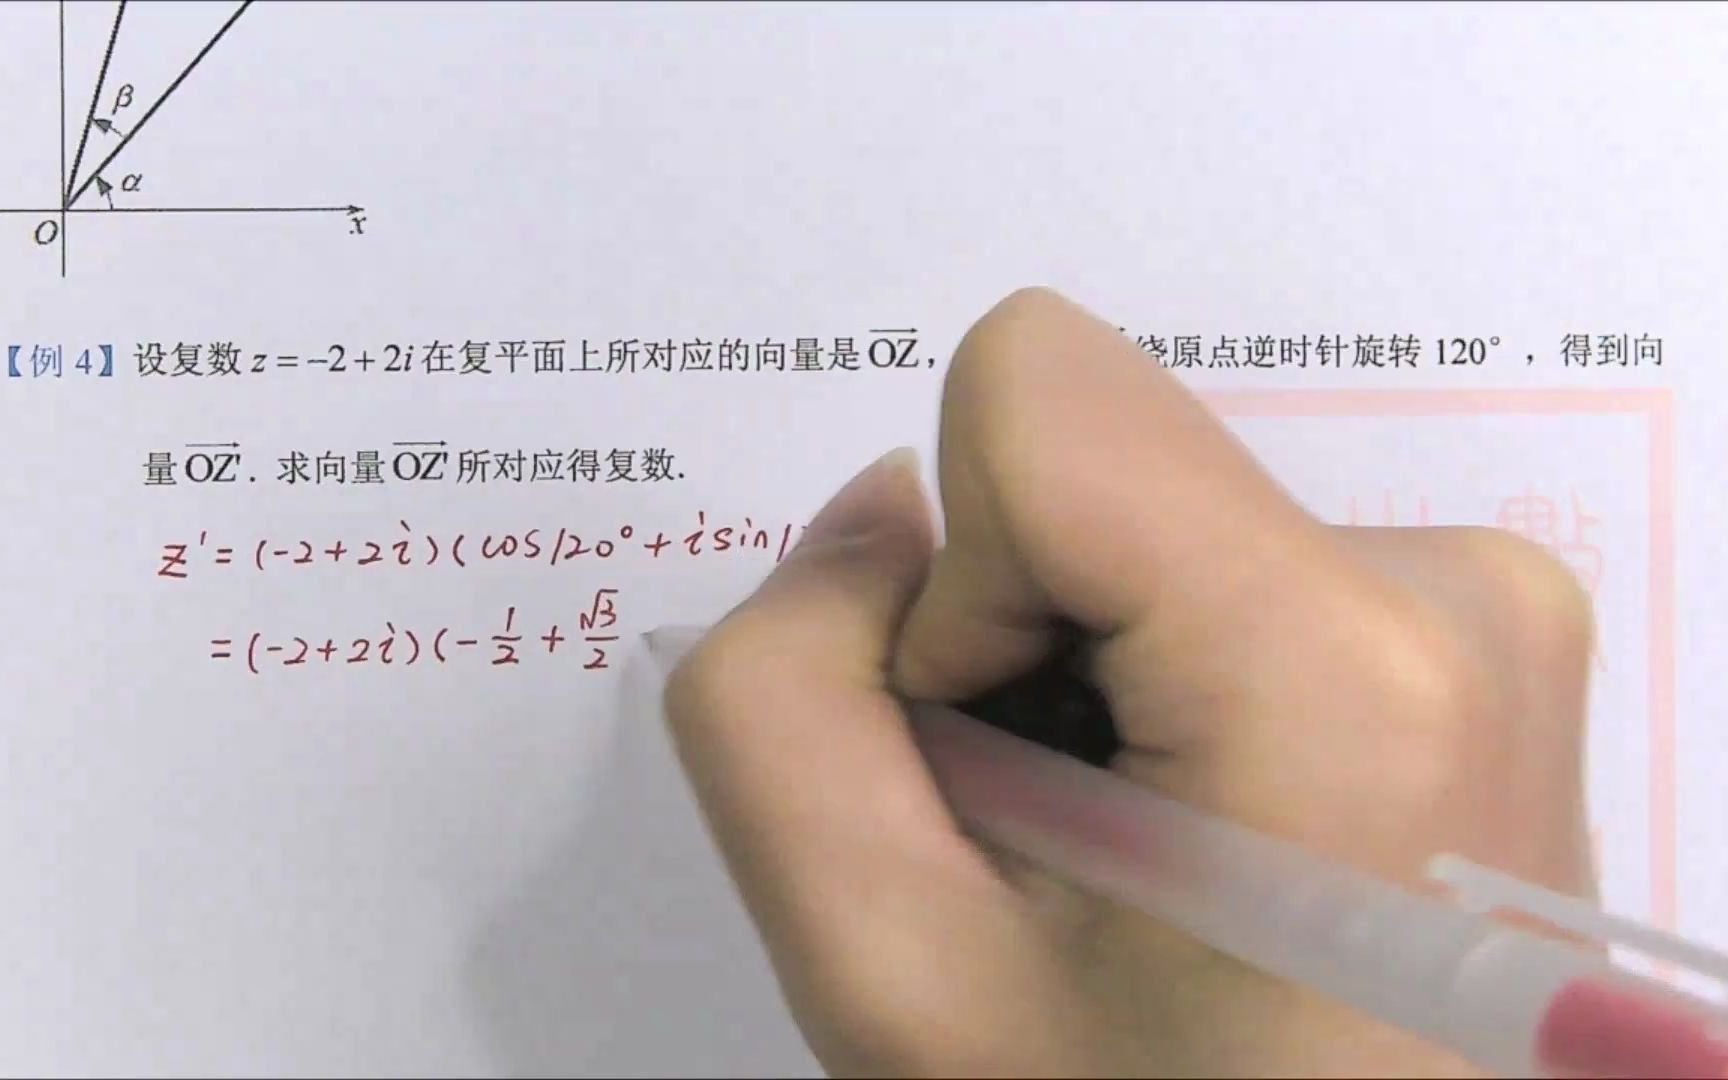 β
α
O
x
【例 4】设复数 z = -2 + 2i 在复平面上所对应的向量是 OZ, 绕原点逆时针旋转 120° ，得到向
量 OZ' . 求向量 OZ' 所对应得复数.
z' = (-2+2i)(cos120°+isin1
= (-2+2i)(-1/2 + √3/2